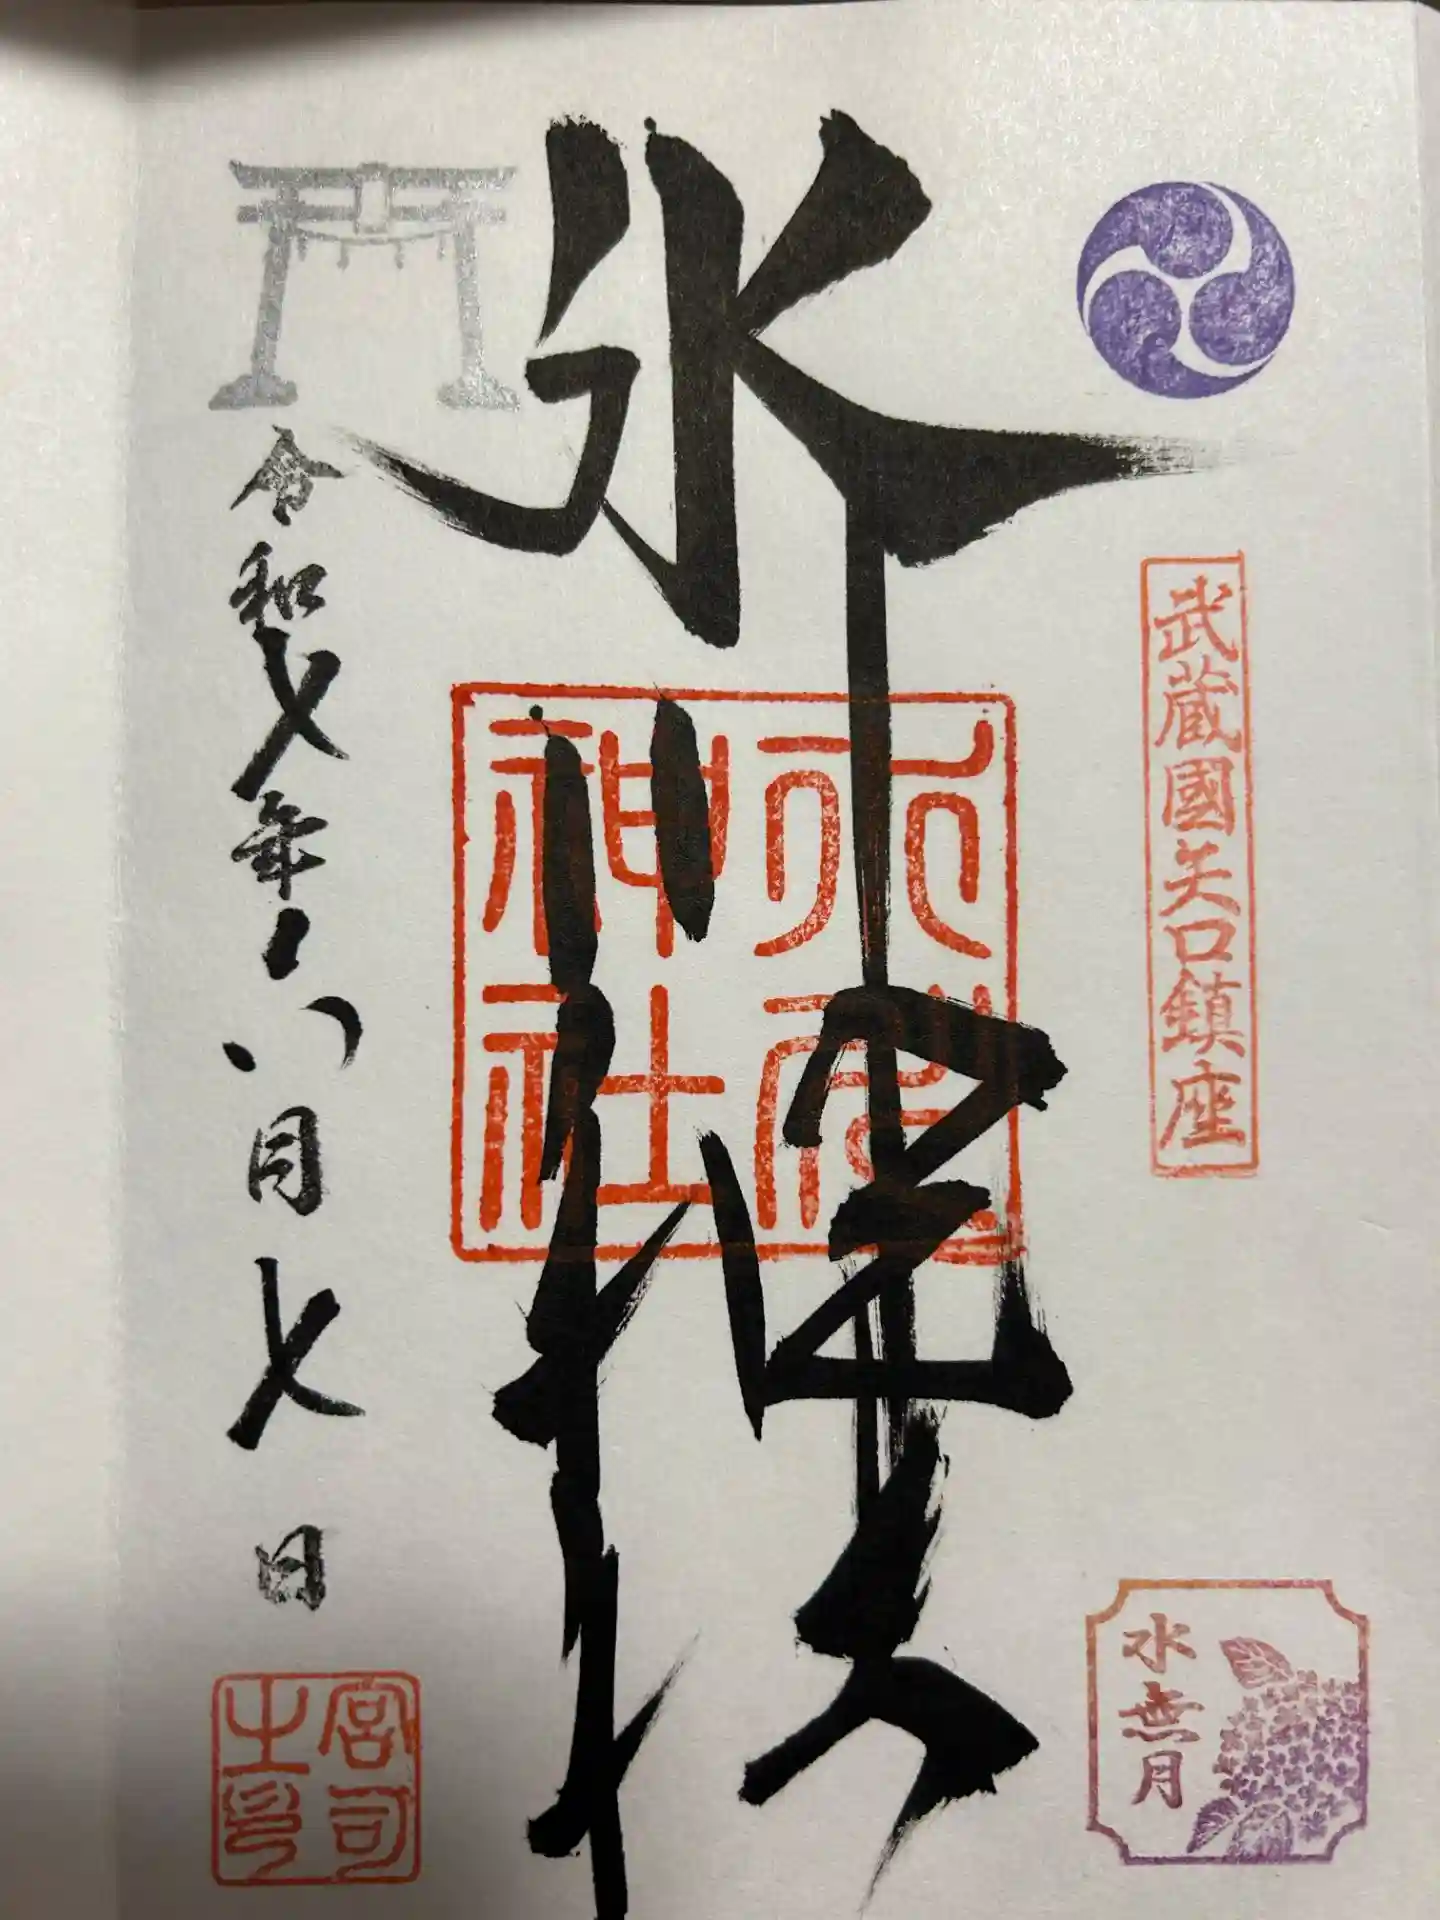 武蔵國矢口鎮座
水無月
氷川神社
神社
令和七年六月七日
宮司
之印